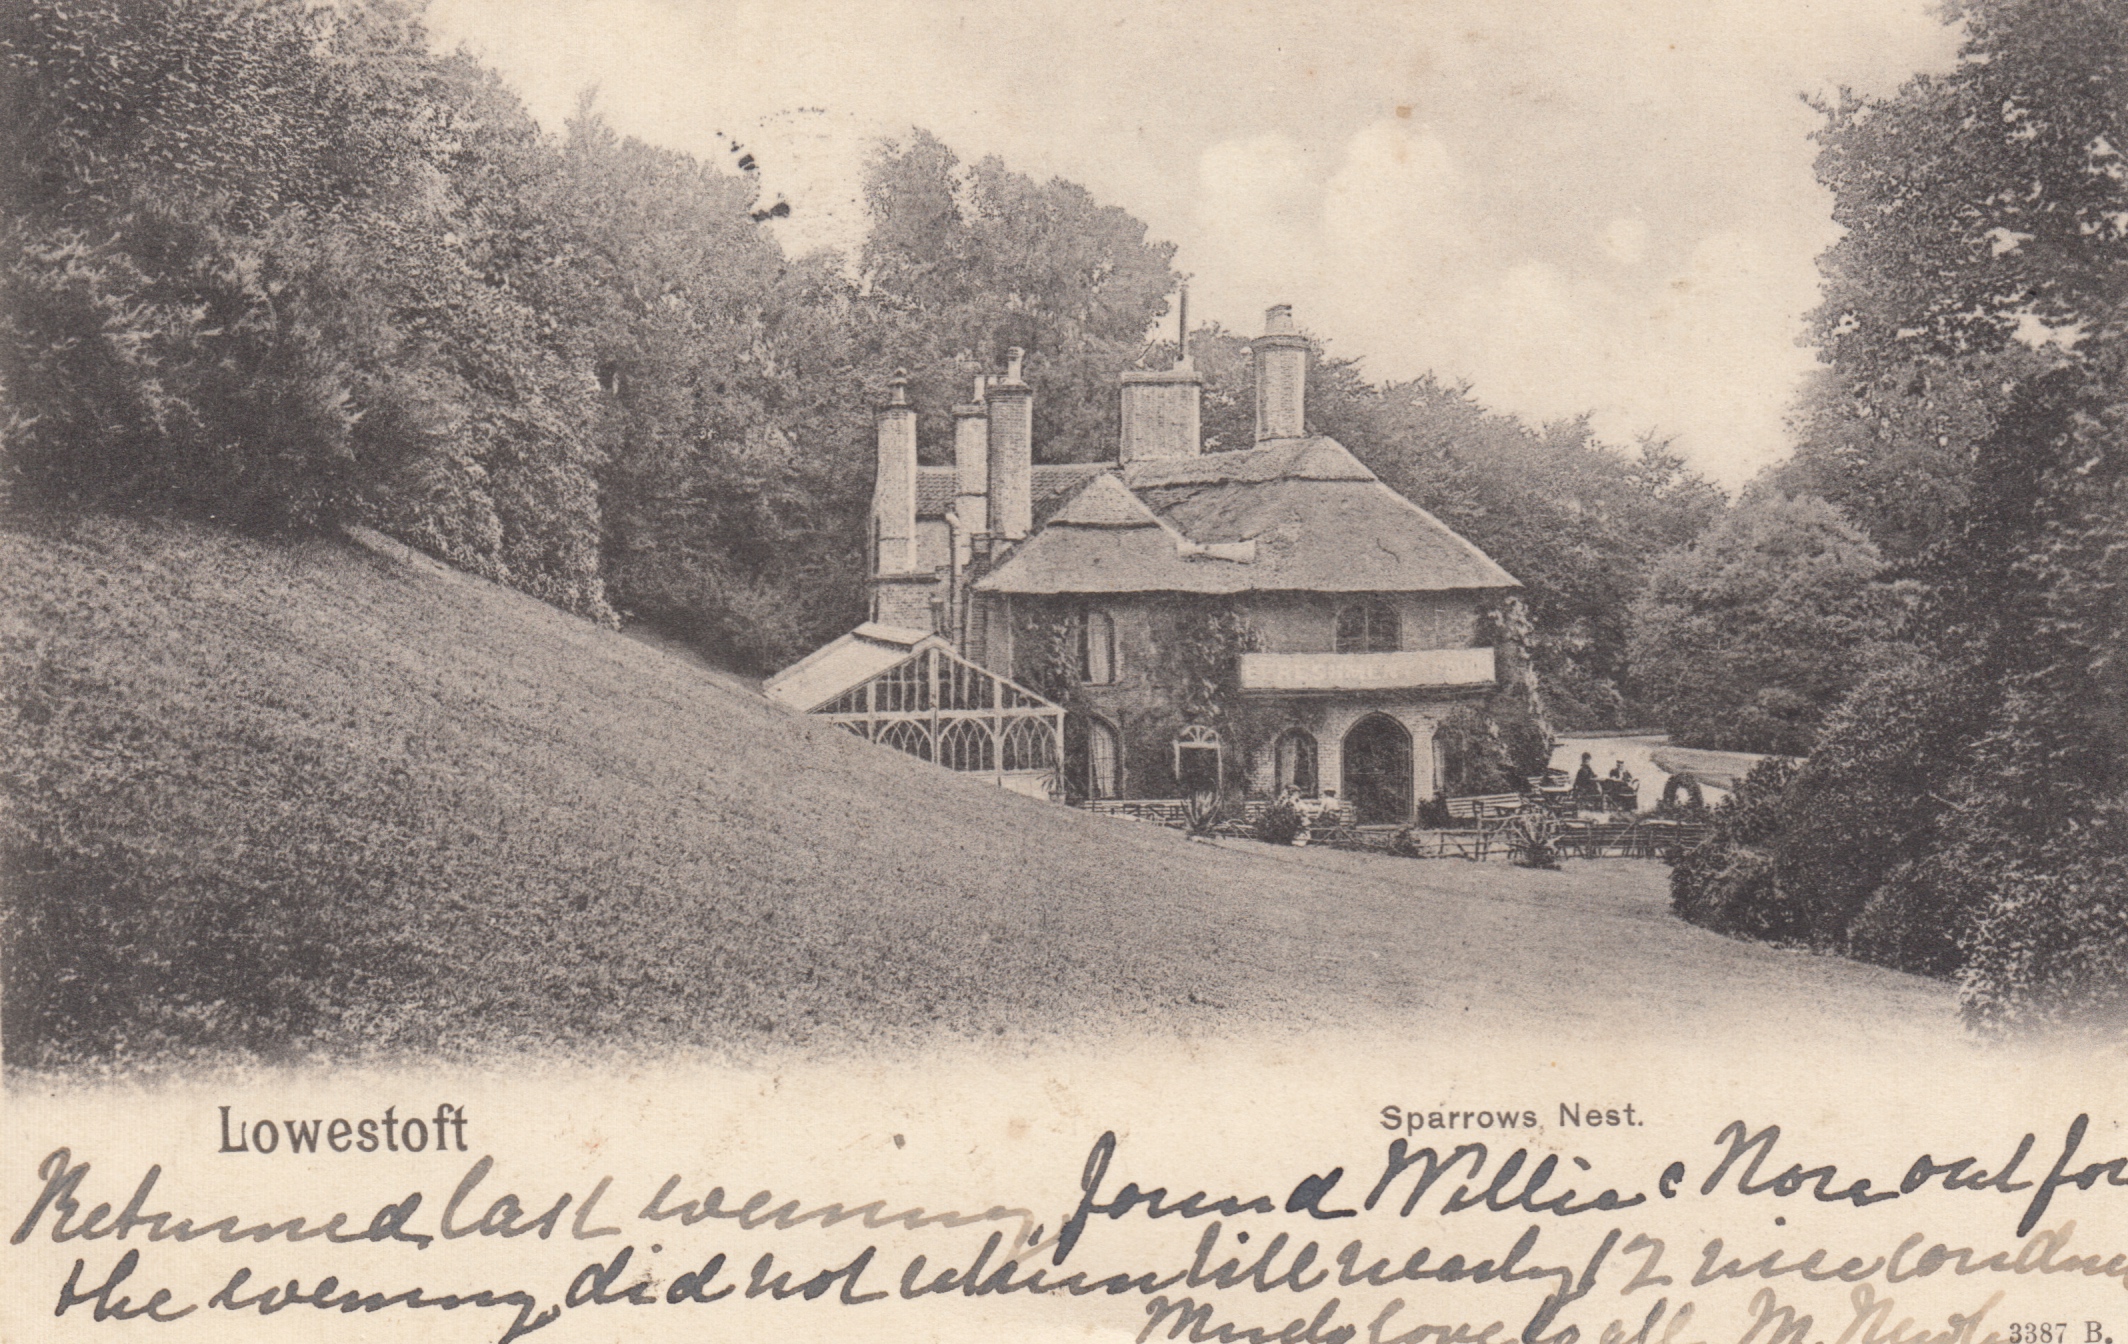 Lowestoft
Sparrows Nest.
Returned last evening found Willie & Nora out for
the evening, did not return till nearly 12 nice
Much love to all M.
3387 B.